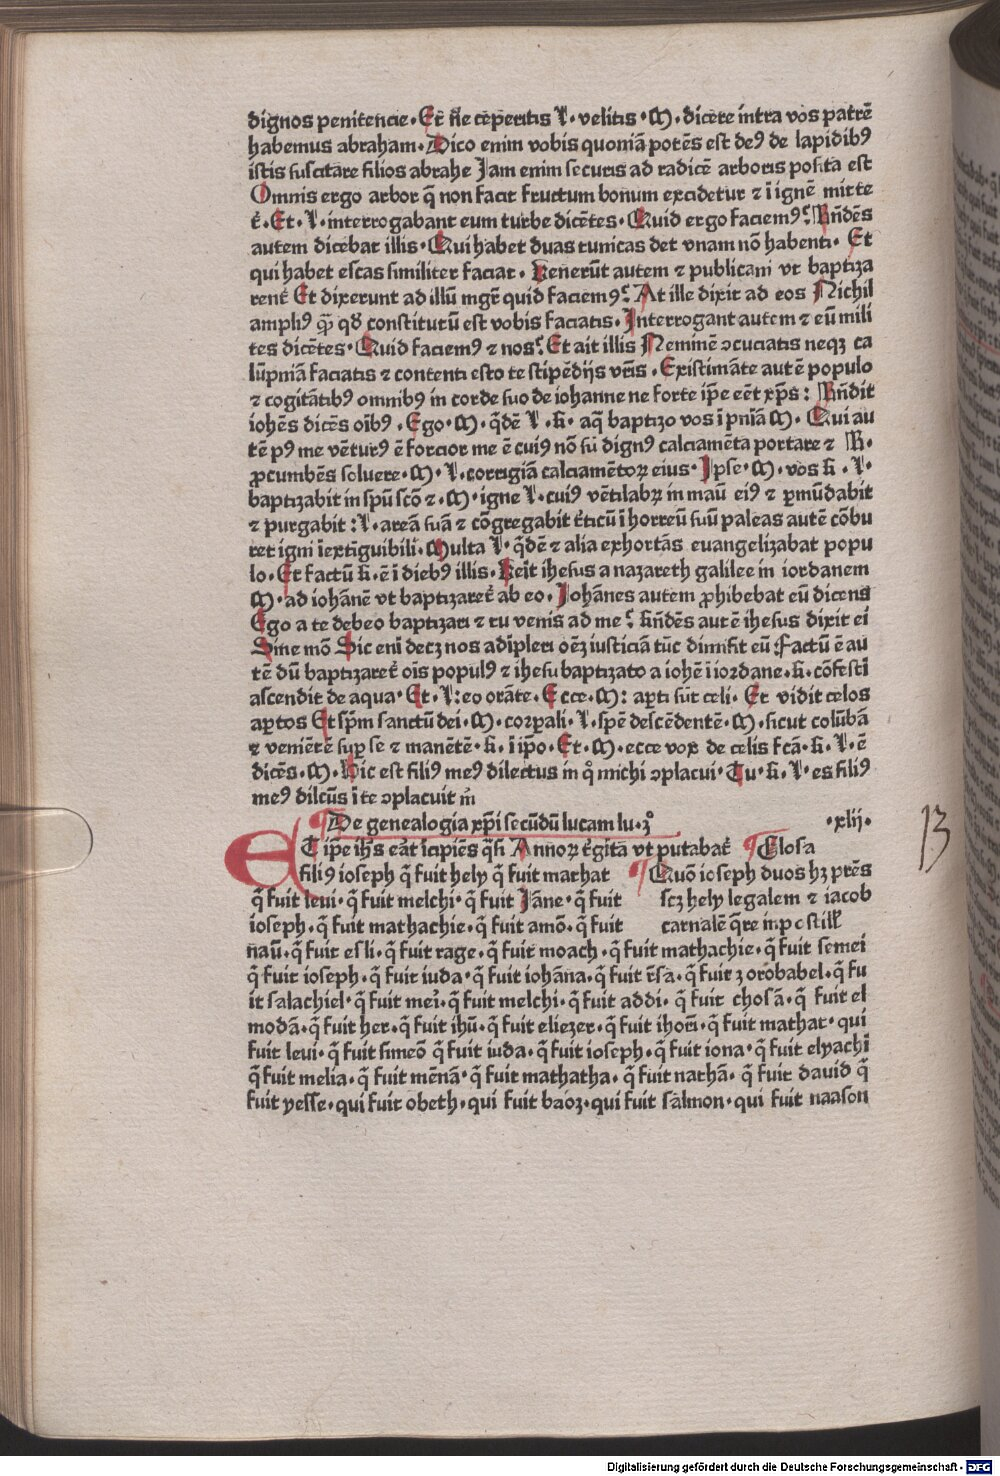 dignos penitencie. Et̄ ne ceperitis L. velitis. M. dicere intra vos patrē
habemus abraham. Dico enim vobis quoniā potēs est deꝰ de lapidibꝰ
istis suscitare filios abrahe Jam enim securis ad radicē arboris posita est
Omnis ergo arbor q̄ non facit fructum bonum excidetur ⁊ ī ignē mitte
t̄. Et. L. interrogabant eum turbe dicētes. Quid ergo faciemꝰ? Rn̄dēs
autem dicebat illis. Qui habet duas tunicas det vnam nō habenti. Et
qui habet escas similiter faciat. Venerūt autem ⁊ publicani vt baptiza
rent̄ Et dixerunt ad illū mgr̄ quid faciemꝰ? At ille dixit ad eos Nichil
ampliꝰ qȝ qd̄ constitutū est vobis faciatis. Interrogant autem ⁊ eū mili
tes dicētes. Quid faciemꝰ ⁊ nos? Et ait illis Neminē ɔcuciatis neqȝ ca
lūpniā faciatis ⁊ contenti estote stipēdijs vr̄is. Existimāte autē populo
⁊ cogitātibꝰ omnibꝰ in corde suo de iohanne ne forte ip̄e eēt xp̄s: Rn̄dit
iohēs dicēs oībꝰ. Ego. M. q̄dē L. k. aq̄ baptizo vos ī pniā M. Qui au
tē pꝰ me vēturꝰ ē forcior me ē cuiꝰ nō sū dignꝰ calciamēta portare ⁊ R.
ꝓcumbēs soluere. M. L. corrigiā calciamētoꝝ eius. Ipse. M. vos k. L.
baptizabit in spū scō ⁊. M. igne L. cuiꝰ vētilabꝝ in manū eiꝰ ⁊ ꝑmūdabit
⁊ purgabit: L. areā suā ⁊ cōgregabit t̄ticū ī horreū suū paleas autē cōbu
ret igni īextīguibili. Multa L. q̄dē ⁊ alia exhortās euangelizabat popu
lo. Et factū k. ē ī diebꝰ illis. Veīt ihesus a nazareth galilee in iordanem
M. ad iohānē vt baptizaret̄ ab eo. Johānes autem ꝓhibebat eū dicens
Ego a te debeo baptizari ⁊ tu venis ad me? Rn̄dēs autē ihesus dixit ei
Sine mō Sic enī decȝ nos adīpleri oēȝ iusticiā tūc dimisit eū: Factū ē au
tē dū baptizaret̄ oīs populꝰ ⁊ ihesu baptizato a iohē ī iordane. k. cōfestī
ascendit de aqua. Et. L: eo orāte. Ecce. M: aꝑti sūt celi. Et vidit celos
aꝑtos Et sp̄m sanctū dei. M. corꝑali. L. spē descēdentē. M. sicut colūbā
⁊ veniētē suꝑ se ⁊ manētē. k. ī ip̄o. Et. M. ecce vox de celis fcā. k. L. ē
dicēs. M. Hic est filiꝰ meꝰ dilectus in qͦ michi ɔplacui. Tu. k. L. es filiꝰ
meꝰ dilcūs ī te ɔplacuit m̄
De genealogia xp̄i secūdū lucam lu. 3ͦ .xlij.
ET ip̄e ih̄s erāt īcipiēs q̄si Annoꝝ t̄gītā vt putabat̄
filiꝰ ioseph q̄ fuit hely q̄ fuit mathat
q̄ fuit leui. q̄ fuit melchi. q̄ fuit Jāne. q̄ fuit
ioseph. q̄ fuit mathachie. q̄ fuit amō. q̄ fuit
Glosa
Quō ioseph duos hȝ prēs
scȝ hely legalem ⁊ iacob
carnalē q̄re in postill
naū. q̄ fuit esli. q̄ fuit rage. q̄ fuit moach. q̄ fuit mathachie. q̄ fuit semei
q̄ fuit ioseph. q̄ fuit iuda. q̄ fuit iohāna. q̄ fuit r̄sa. q̄ fuit zorobabel. q̄ fu
it salachiel. q̄ fuit meī. q̄ fuit melchi. q̄ fuit addi. q̄ fuit chosā. q̄ fuit el
modā. q̄ fuit her. q̄ fuit ihū. q̄ fuit eliezer. q̄ fuit ihorī. q̄ fuit mathat. qui
fuit leui. q̄ fuit simeō q̄ fuit iuda. q̄ fuit ioseph. q̄ fuit iona. q̄ fuit elyachī
q̄ fuit melia. q̄ fuit mēnā. q̄ fuit mathatha. q̄ fuit nathā. q̄ fuit dauid q̄
fuit yesse. qui fuit obeth. qui fuit baoz. qui fuit salmon. qui fuit naason
13
Digitalisierung gefördert durch die Deutsche Forschungsgemeinschaft - DFG